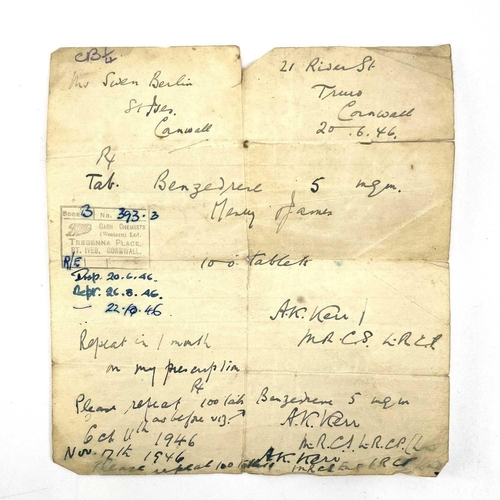 CB½
21 River St
Truro
Cornwall
20.6.46.
Mr Sven Berlin
St Ives.
Cornwall
Rx
Tab. Benzedrine 5 mgm.
Menley & James
Book 3 No. 393.3
Cash Chemists
(Western) Ltd.
Tregenna Place,
St. Ives, Cornwall.
100 tablets
R/E
Disp. 20.6.46.
Rept. 26.8.46.
22.10.46
A.K. Kerr
M.R.C.S. L.R.C.P.
Repeat in 1 month
on my prescription
Rx
Please repeat 100 tabs Benzedrene 5 mgm
as before
A.K. Kerr
Oct 11th 1946
M.R.C.S. L.R.C.P.
Nov. 17th 1946
A.K. Kerr
Please repeat 100 tablets